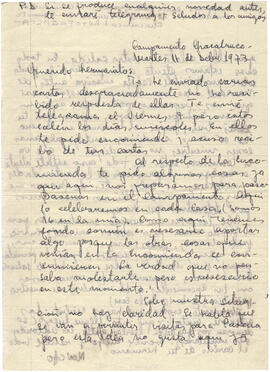 P.D. Si se produce cualquier novedad antes,
te enviaré telegrama. Saludos a los amigos
Campamento Chacabuco.
Martes 11 de 1973
Querido hermanito:
Te he enviado varias
cartas, desgraciadamente no he reci-
bido respuesta de ellas. Te envié
telegramas el viernes, y pero estos
salen los días miércoles. En ellos
te pedía encomienda y acuso reci-
bo de tus cartas.
Al respecto de la enco-
mienda te pido algunas cosas, ya
que aquí nos preparamos para pasar
Pascua en el Campamento. Aquí
lo celebraremos en cada casa. Somos
16 en la mía. Como aquí tenemos
fondo común es necesario aportar
algo porque las otras cosas que
venían en la encomienda se con-
sumieron. La verdad que no po-
en este momento.
Sobre nuestra
no hay claridad. Se habla que
se van a permitir visita para Pascua
pero esta idea no gusta aquí ya